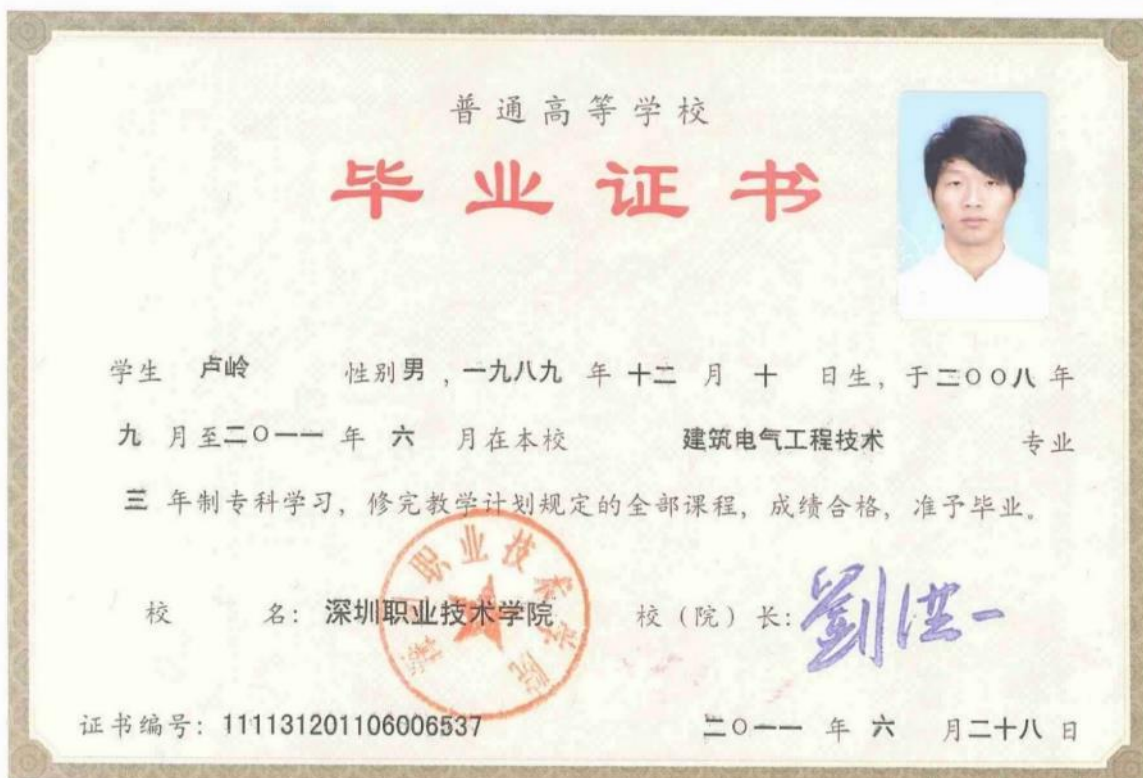 普通高等学校
毕业证书
学生 卢岭 性别 男 ，一九八九 年 十二 月 十 日生，于二〇〇八 年
九 月至二〇一一 年 六 月在本校 建筑电气工程技术 专业
三 年制专科学习，修完教学计划规定的全部课程，成绩合格，准予毕业。
校 名：深圳职业技术学院 校（院）长：劉洪一
深圳职业技术学院
证书编号：111131201106006537 二〇一一 年 六 月二十八 日